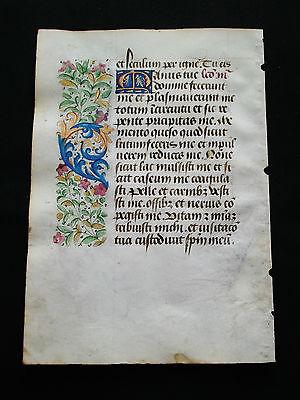 et seculum per igne͂. Tu cis
Manus tue
domine fecerunt
me et plasmaverunt me
totum i͂ circuitu et sic re
pente precipitas me. Me
mento queso quod sicut
lutum feceris me et in pul
verem reduces me. Nonne
sicut lac mulsisti me et si
cut caseum me coagula
sti Pelle et carnibz vesti
sti me. ossibz et nervis co͂
pegisti me. Vitam et mi͂az
tribuisti michi. et visitatio
tua custodivit sp͂m meu͂.